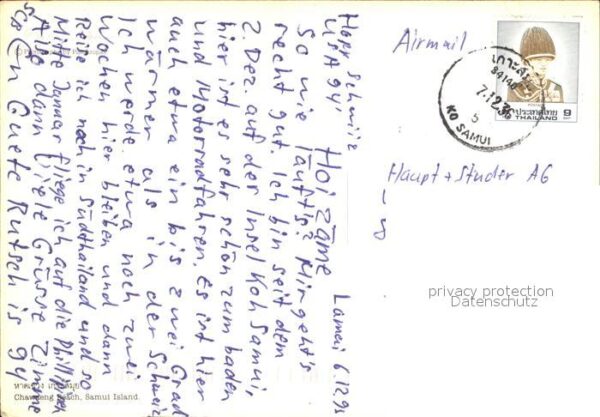 Hopp Schwiiz
USA 94!
Lamai 6.12.93
Hoi zäme
So wie läuft's? Mir geht's
recht gut. Ich bin seit dem
2. Dez. auf der Insel Koh Samui,
hier ist es sehr schön zum baden
und Motorradfahren. Es ist hier
auch etwa ein bis zwei Grad
wärmer als in der Schweiz
Ich werde etwa noch zwei
Wochen hier bleiben und dann
Reise ich noch in Südthailand und so
Mitte Januar fliege ich auf die Phillipinen
Also dann viele Grüsse
En Guete Rutsch is 94
Airmail
Haupt + Studer AG
KO SAMUI
ประเทศไทย
THAILAND
9
privacy protection
Datenschutz
Chaweng Beach, Samui Island.